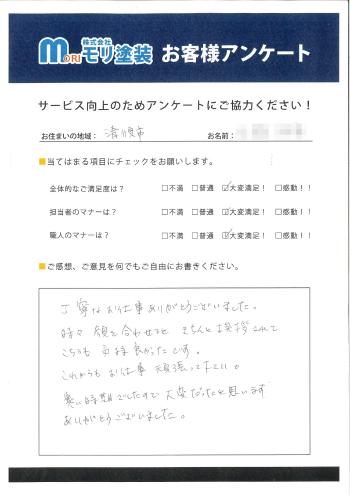 株式会社
MORI モリ塗装 お客様アンケート
サービス向上のためアンケートにご協力ください！
お住まいの地域： 清須市 お名前：
■当てはまる項目にチェックをお願いします。
全体的なご満足度は？ □不満 □普通 ☑大変満足！ □感動！！
担当者のマナーは？ □不満 □普通 ☑大変満足！ □感動！！
職人のマナーは？ □不満 □普通 ☑大変満足！ □感動！！
■ご感想、ご意見を何でもご自由にお書きください。
丁寧なお仕事ありがとうございました。
時々 顔を合わせると きちんと挨拶されて
こちらも 気持良かったです。
これからも お仕事 頑張って下さい。
寒い時期でしたので 大変だったと思います
ありがとうございました。